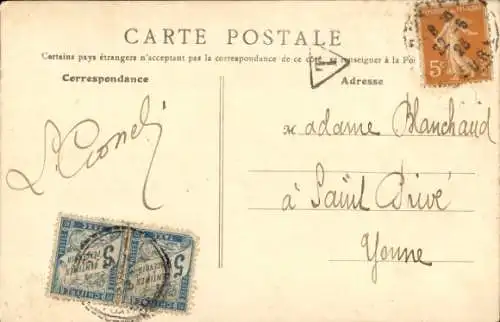 CARTE POSTALE
Certains pays étrangers n'acceptant pas la correspondance de ce côté, se renseigner à la Pos
Correspondance
Adresse
T
5c
Madame Blanchard
à Saint Privé
Yonne
5
5